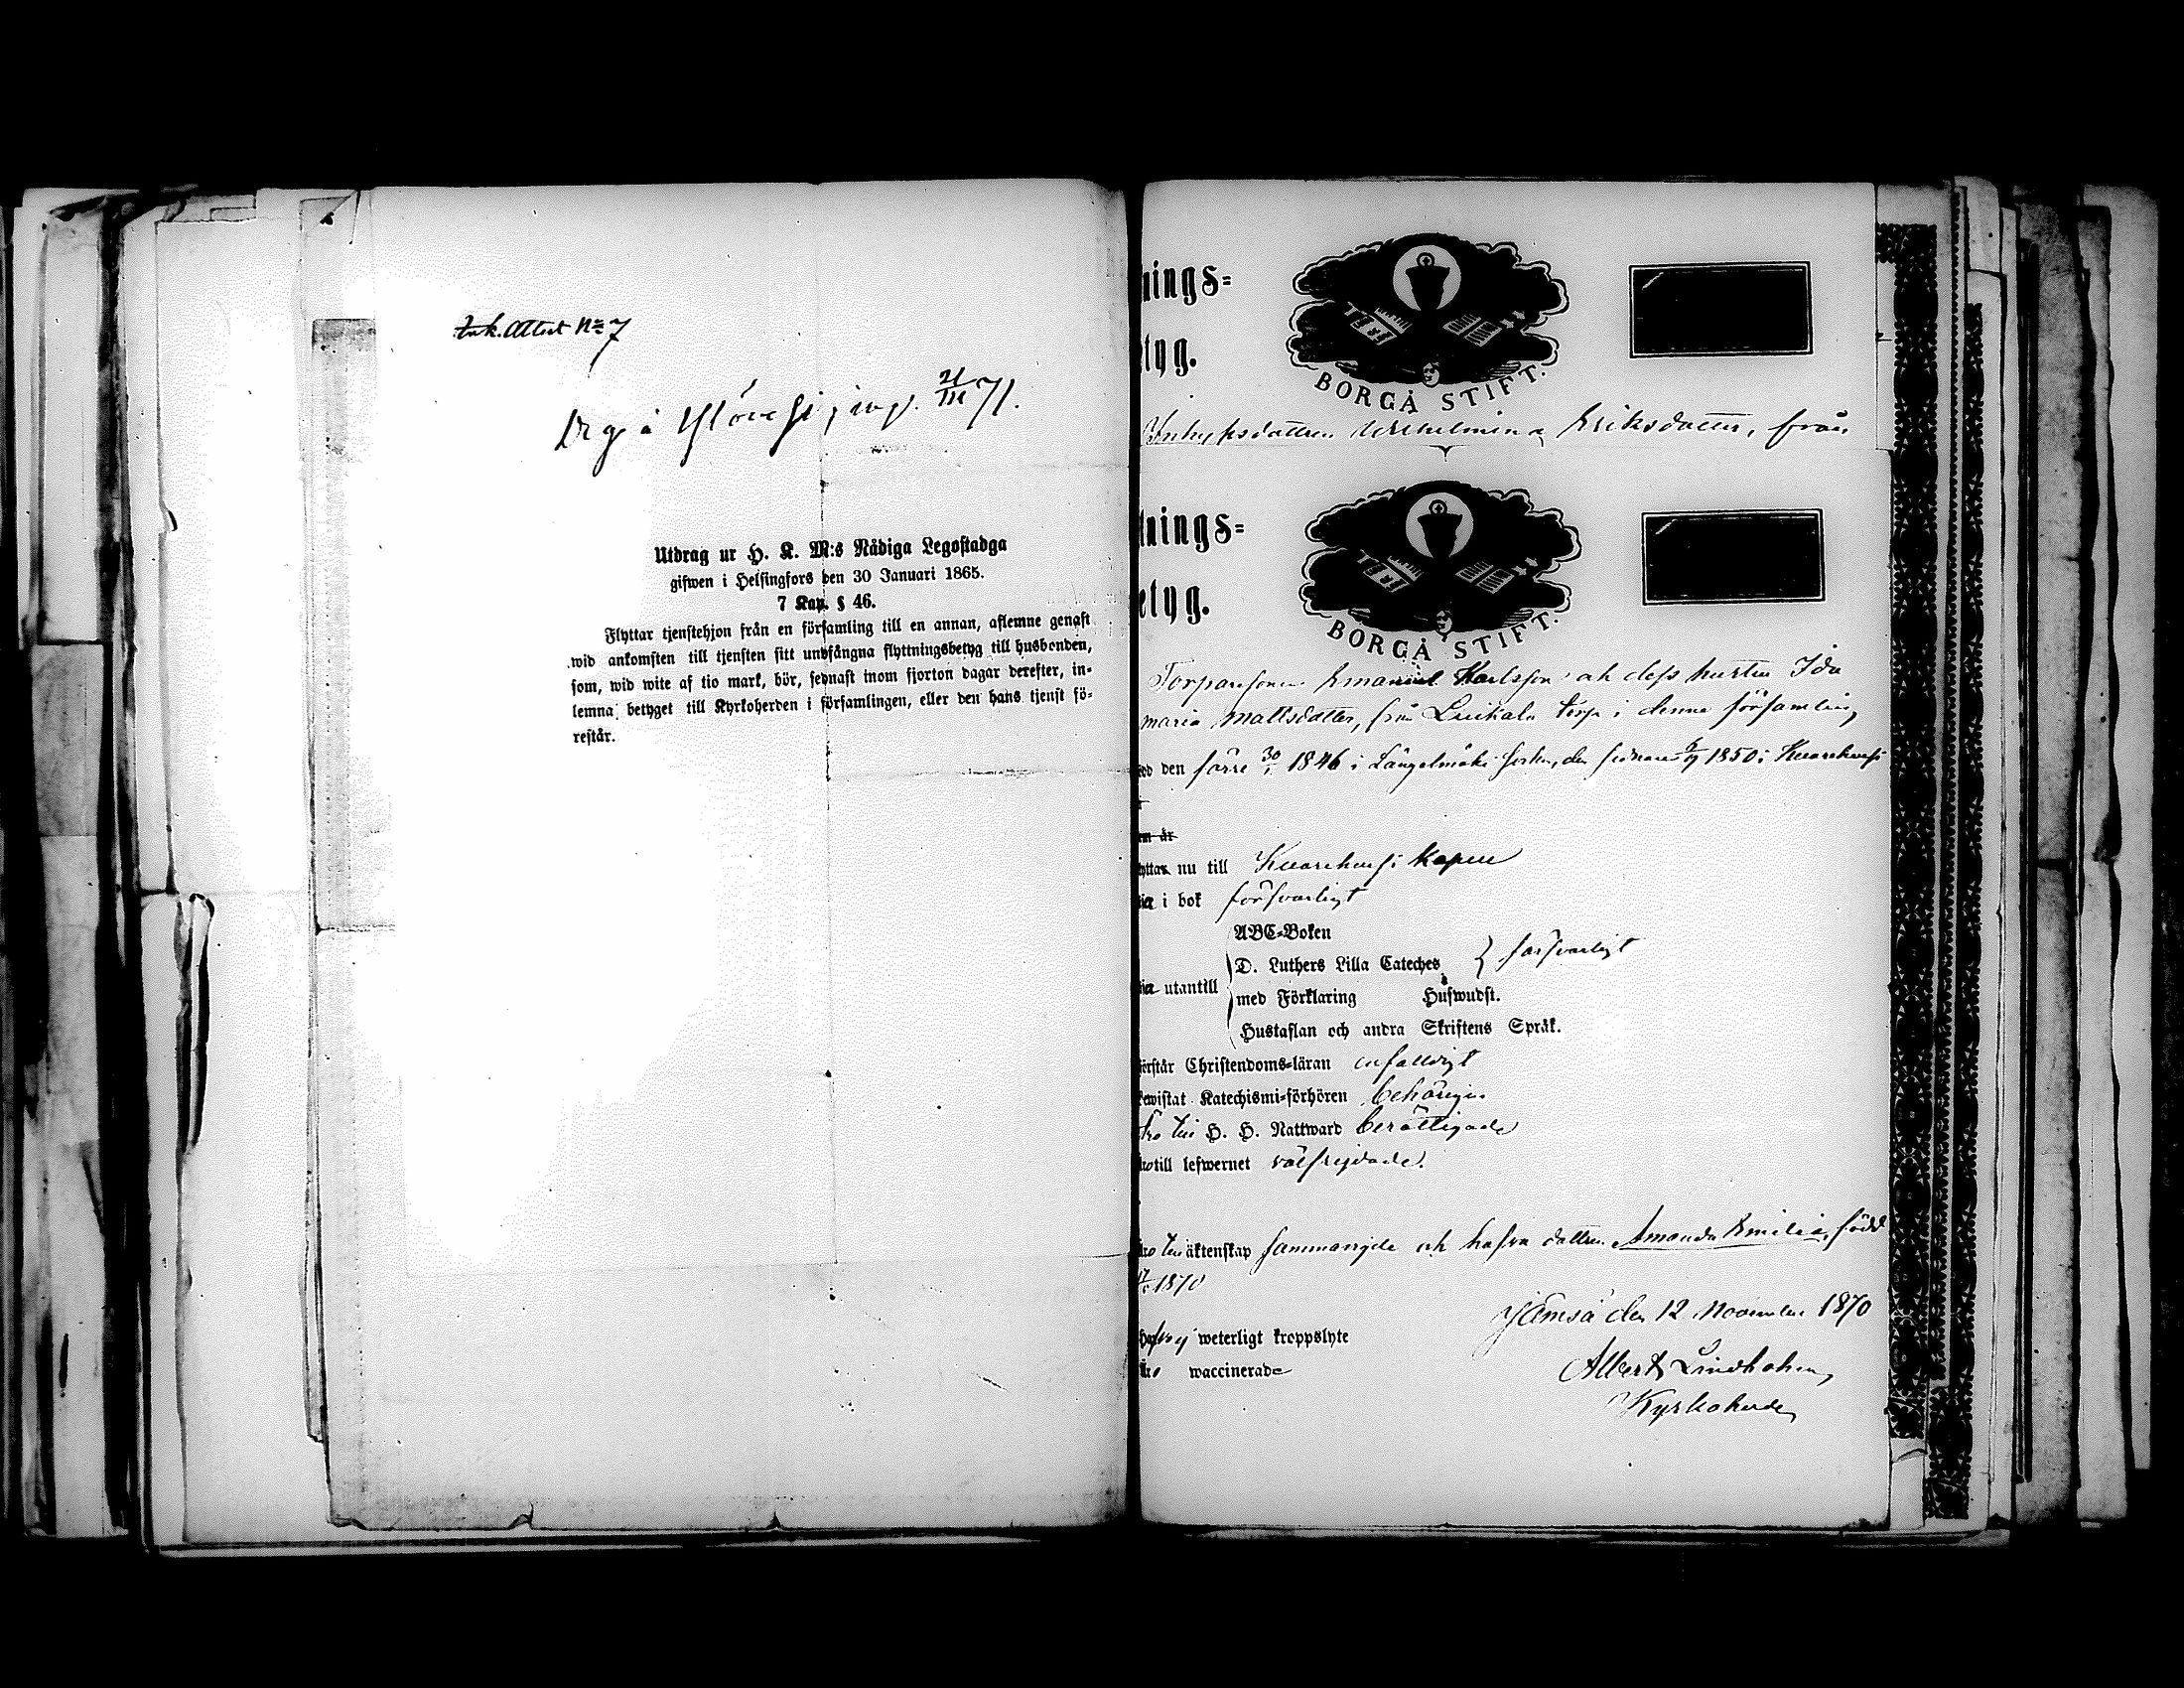 Ink. Attest No 7
å Ylöve
21/III 71.
Utdrag ur H. K. M:s Nådiga Legostadga
gifwen i Helsingfors den 30 Januari 1865.
7 Kap. § 46.
Flyttar tjenstehjon från en församling till en annan, aflemne genast
wid ankomsten till tjensten sitt undfångna flyttningsbetyg till husbonden,
som, wid wite af tio mark, bör, sednast inom fjorton dagar derefter, in-
lemna betyget till Kyrkoherden i församlingen, eller den hans tjenst fö-
restår.
nings-
tyg.
BORGÅ STIFT.
Inhysesdottren Wilhelmina Eriksdotter, från
tnings-
etyg.
BORGÅ STIFT.
Torparesonen Emanuel Karlsson och dess hustru Ida
Maria Mattsdotter, från Torp i denne församling
den förre 30/1 1846 i Längelmäki Socken, den sednare 1850 i
år
nu till Kapell
i bok försvarligt
ABC-Boken
D. Luthers Lilla Cateches } försvarligt
utantill
med Förklaring å Hufwudst.
Hustaflan och andra Skriftens Språk.
förstår Christendoms-läran enfaldigt
bewistat Katechismi-förhören behörigen
till H. H. Nattward berättigade
till lefwernet välfrejdade.
äktenskap sammanvigde och hafva dottren Amanda Emilia, född
1870
Jämsä den 12 November 1870
weterligt kroppslyte
Albert Lindholm
waccinerade
Kyrkoherde